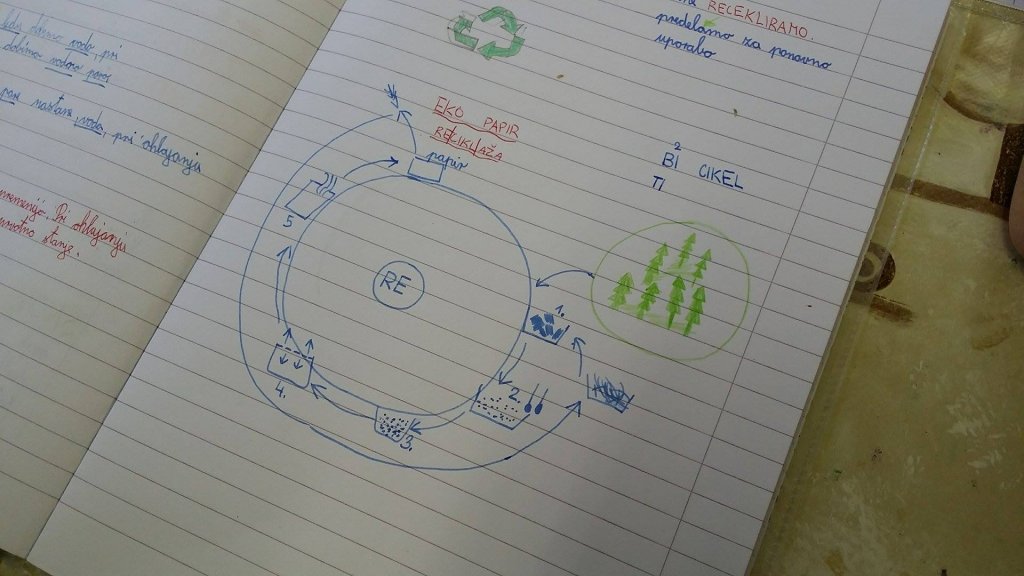 dobimo vodo, pri
dobimo vodno paro
pare nastane voda, pri ohlajanju
Pri ohlajanju
stanje.
RECEKLIRAMO.
predelamo za ponovno
uporabo
EKO PAPIR
RECIKLAŽA
papir
2
BI CIKEL
TI
5
RE
1.
2.
3.
4.